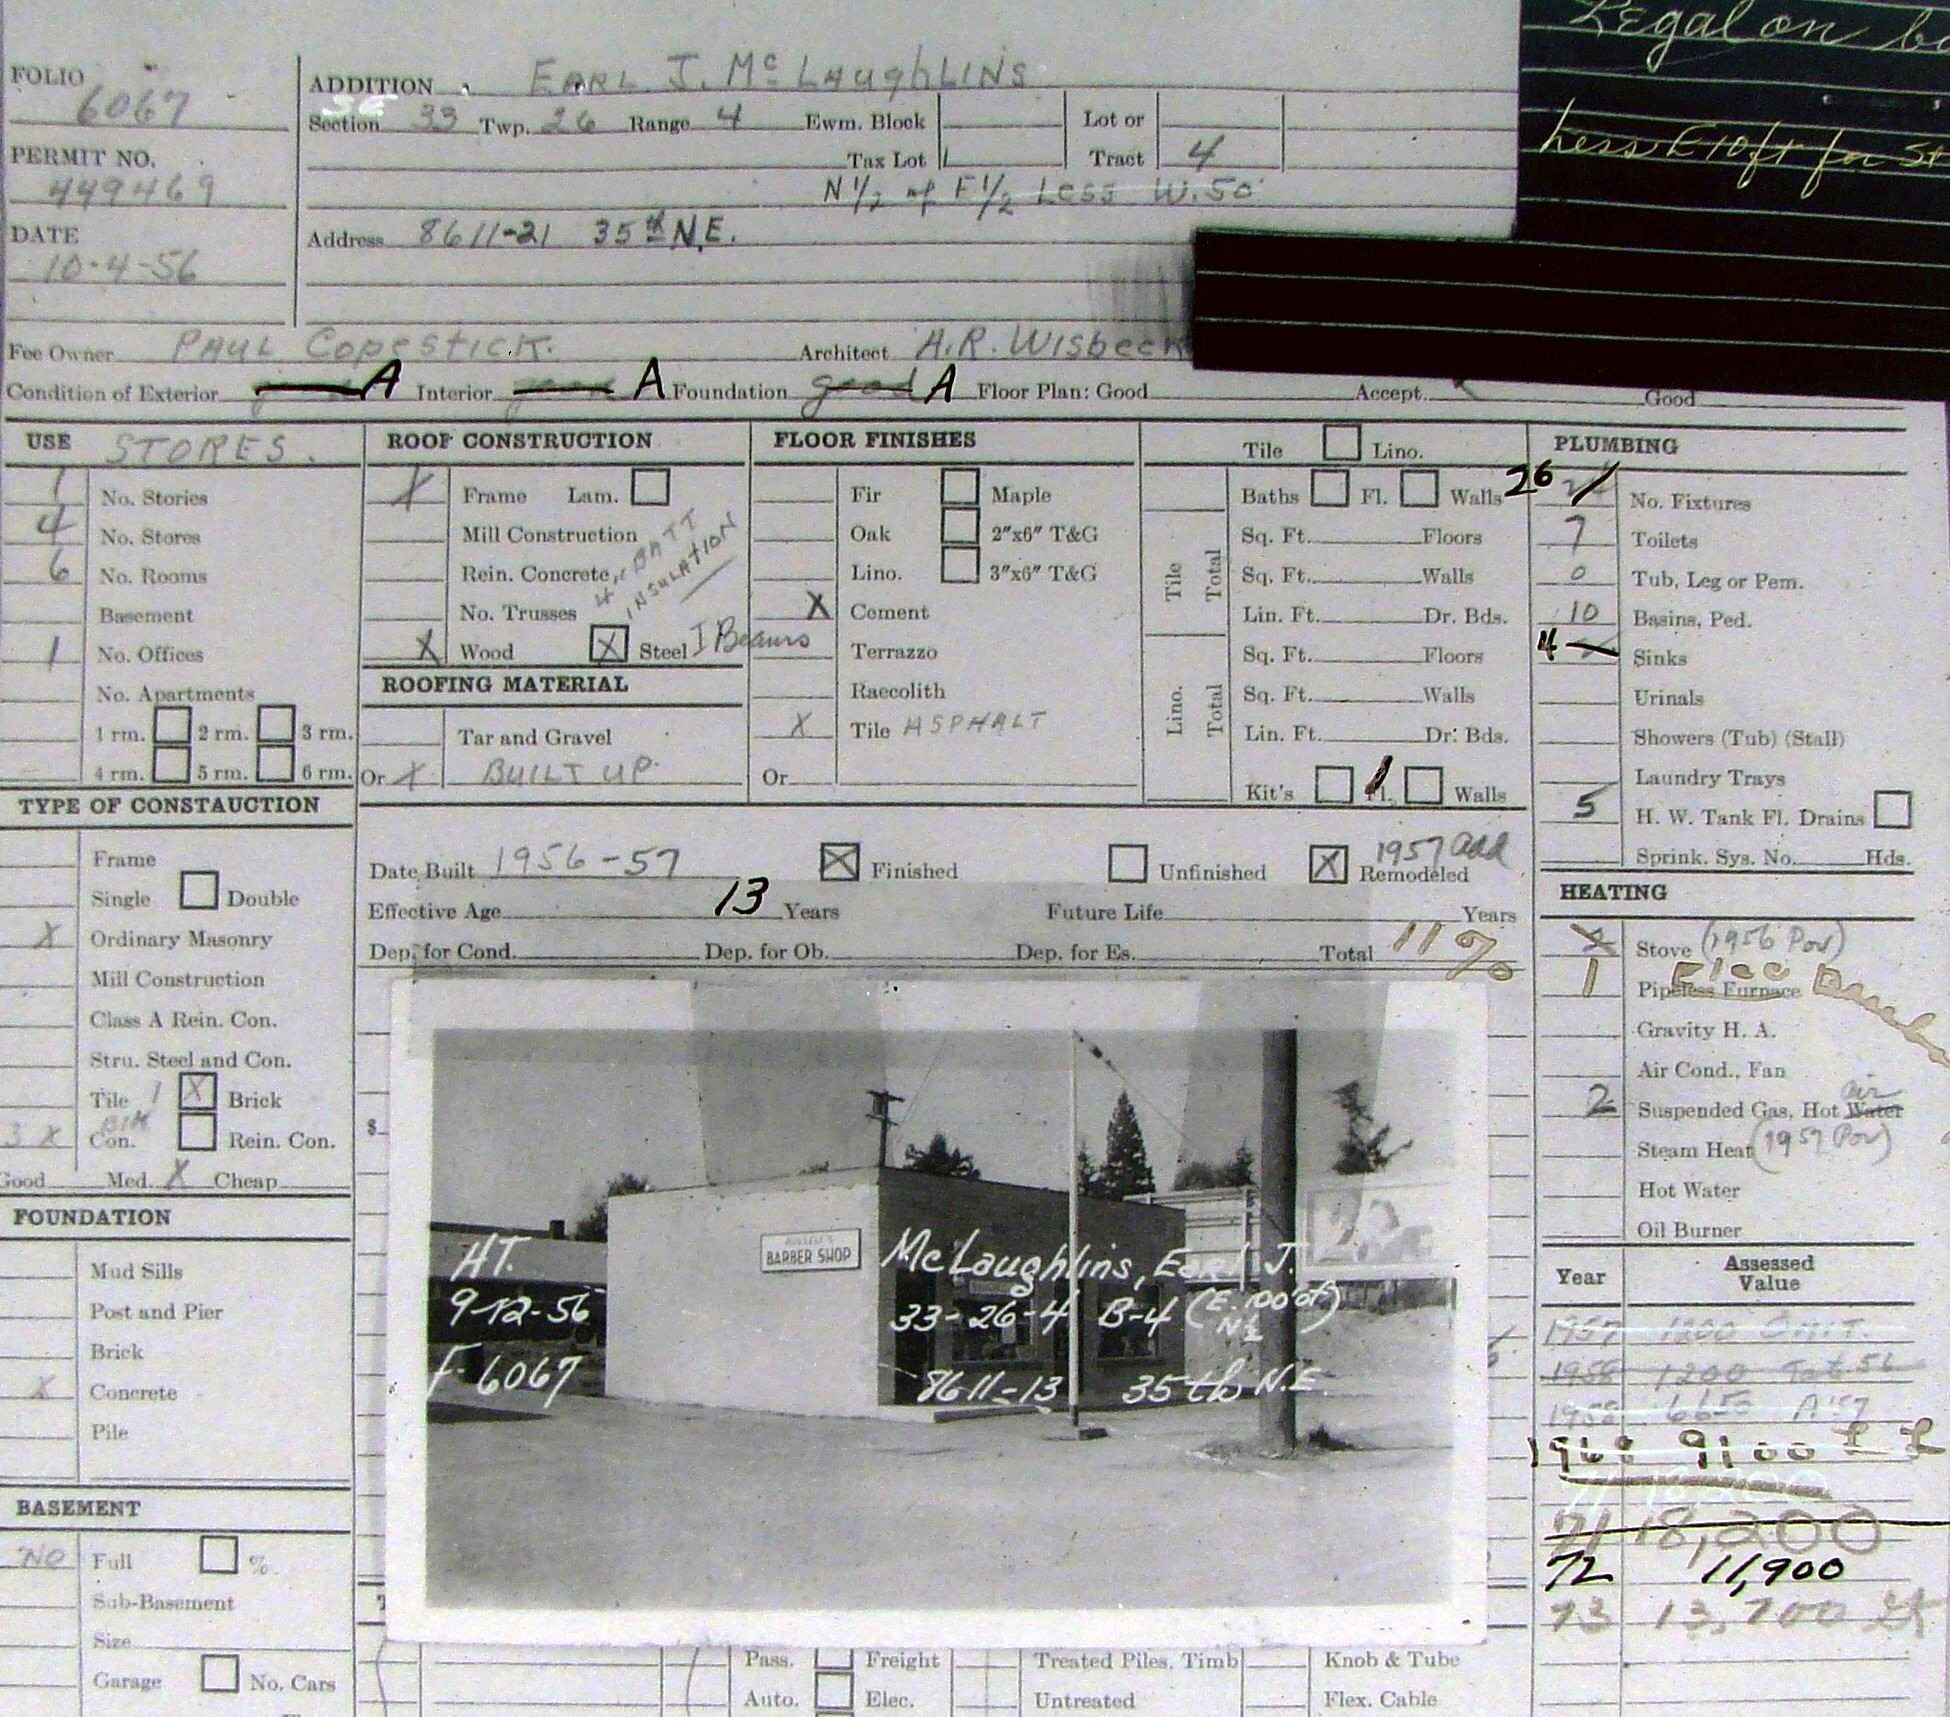 Legal on
Less E 10 ft for St
FOLIO
6067
ADDITION EARL J. Mc LAughLINS
Section 33 Twp. 26 Range 4 Ewm. Block Lot or
PERMIT NO. Tax Lot Tract 4
449469
N 1/2 of E 1/2 Less W. 50'
DATE
Address 8611-21 35th N.E.
10-4-56
Fee Owner PAUL Copestick. Architect A.R. Wisbeck
Condition of Exterior good A Interior good A Foundation good A Floor Plan: Good Accept. Good
USE STORES.
1 No. Stories
4 No. Stores
6 No. Rooms
Basement
1 No. Offices
No. Apartments
1 rm. 2 rm. 3 rm.
4 rm. 5 rm. 6 rm.
TYPE OF CONSTAUCTION
Frame
Single Double
X Ordinary Masonry
Mill Construction
Class A Rein. Con.
Stru. Steel and Con.
Tile 1 X Brick
3 X Con. Blk Rein. Con.
Good Med. X Cheap
FOUNDATION
Mud Sills
Post and Pier
Brick
X Concrete
Pile
BASEMENT
NO Full %
Sub-Basement
Size
Garage No. Cars
ROOF CONSTRUCTION
X Frame Lam.
Mill Construction
Rein. Concrete 4" BATT INSULATION
No. Trusses
X Wood X Steel I Beams
ROOFING MATERIAL
Tar and Gravel
Or X BUILT UP.
FLOOR FINISHES
Fir Maple
Oak 2"x6" T&G
Lino. 3"x6" T&G
X Cement
Terrazzo
Raecolith
X Tile ASPHALT
Or
Tile Lino.
Baths Fl. Walls
Tile Total
Sq. Ft. Floors
Sq. Ft. Walls
Lin. Ft. Dr. Bds.
Lino. Total
Sq. Ft. Floors
Sq. Ft. Walls
Lin. Ft. Dr. Bds.
Kit's Fl. Walls
PLUMBING
26 No. Fixtures
7 Toilets
0 Tub, Leg or Pem.
10 Basins, Ped.
4 Sinks
Urinals
Showers (Tub) (Stall)
Laundry Trays
5 H. W. Tank Fl. Drains
Sprink. Sys. No. Hds.
Date Built 1956-57 X Finished Unfinished X Remodeled 1957 add
Effective Age 13 Years Future Life Years
Dep. for Cond. Dep. for Ob. Dep. for Es. Total 11%
HEATING
Stove (1956 Por)
1 Pipeless Furnace Elec
Gravity H. A.
Air Cond., Fan
2 Suspended Gas, Hot Water air
Steam Heat (1957 Por)
Hot Water
Oil Burner
Year Assessed Value
1957 1200 Omit.
1958 1200 Tot. 56
1958 6650 A'57
1968 9100
71 18,200
72 11,900
73 13,700
$
BARBER SHOP
HT.
9-12-56
F-6067
McLaughlins, Earl J.
33-26-4 B-4 (E. 100' of N½)
8611-13 35th N.E.
Pass. Freight Treated Piles, Timb Knob & Tube
Auto. Elec. Untreated Flex. Cable